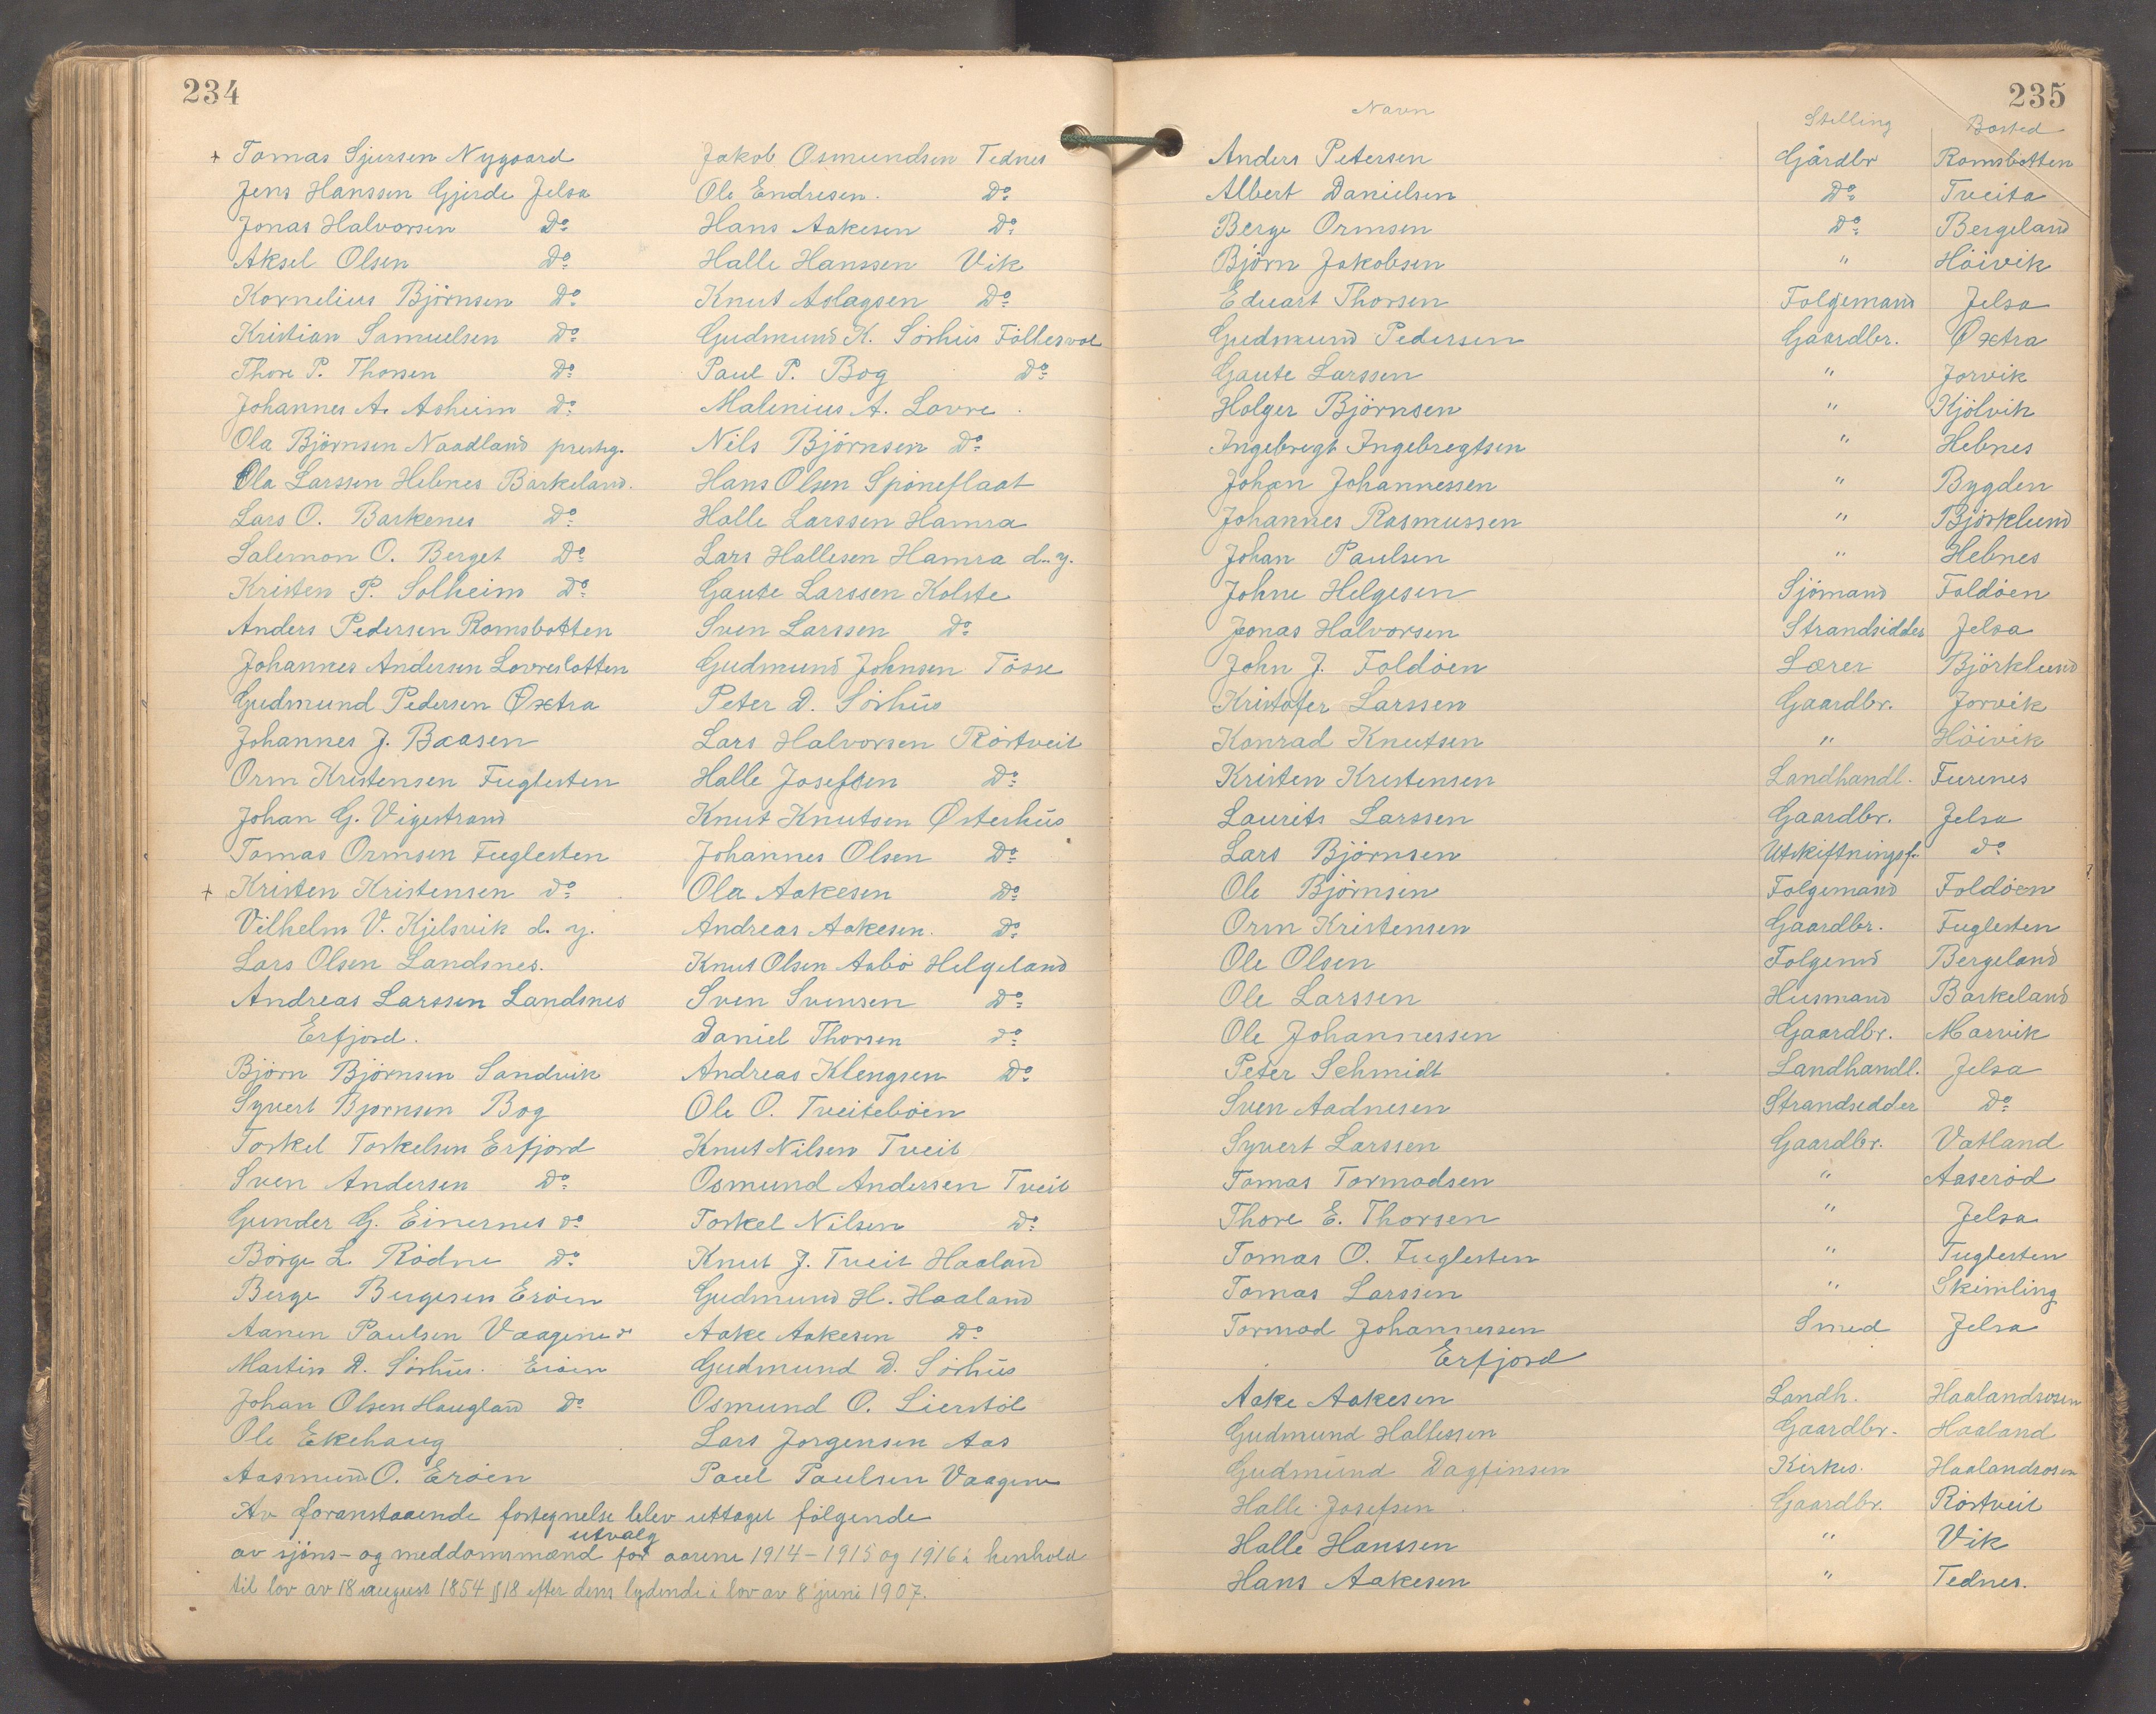 234
+ Tomas Sjursen Nygaard
Jens Hanssen Gjerde Jelsa
Jonas Halvorsen Do
Aksel Olsen Do
Kornelius Björnsen Do
Kristian Samuelsen Do
Thore P. Thorsen Do
Johannes A. Asheim Do
Ola Björnsen Naadland prestg.
Ola Larssen Hebnes Barkeland.
Lars O. Barkenes Do
Salemon O. Berget Do
Kristen P. Solheim Do
Anders Pedersen Romsbotten
Johannes Andersen Lovreslotten
Gudmund Pedersen Øxtra
Johannes J. Baasen
Orm Kristensen Fuglesten
Johan G. Vigestrand
Tomas Ormsen Fuglesten
+ Kristen Kristensen do
Vilhelm V. Kjelsvik d. y.
Lars Olsen Landsnes.
Andreas Larssen Landsnes
Erfjord.
Björn Björnsen Sandvik
Syvert Bjornsen Bog
Torkel Torkelsen Erfjord
Sven Andersen Do
Gunder G. Einernes do
Börge L. Rödne Do
Berge Bergesen Eröen
Aanen Paulsen Vaagene
Martin D. Sörhus. Eröen
Johan Olsen Haugland Do
Ole Ekehaug
Aasmund O. Eröen
Jakob Osmundsen Tednes
Ole Endresen. Do
Hans Aakesen Do
Halle Hanssen Vik
Knut Aslagsen Do
Gudmund K. Sörhus Föllesvol
Paul P. Bog Do
Malenius A. Lovre
Nils Björnsen Do
Hans Olsen Spöneflaat
Halle Larssen Hamra
Lars Hallesen Hamra d. y.
Gaute Larssen Kolste
Sven Larssen Do
Gudmund Johnsen Tösse
Peter D. Sörhus
Lars Halvorsen Rörtveit
Halle Josefsen Do
Knut Knutsen Østerhus
Johannes Olsen Do
Ola Aakesen Do
Andreas Aakesen. Do
Knut Olsen Aabö Helgeland
Sven Svensen Do
Daniel Thorsen do
Andreas Klengsen Do
Ole O. Tveiteböen
Knut Nilsen Tveit
Osmund Andersen Tveit
Torkel Nilsen Do
Knut J. Tveit Haaland
Gudmund H. Haaland
Aake Aakesen Do
Gudmund D. Sörhus
Osmund O. Lierstöl
Lars Jorgensen Aas
Paul Paulsen Vaagene
Av foranstaaende fortegnelse blev uttaget fölgende
utvalg
av sjöns- og meddomsmænd for aarene 1914-1915 og 1916 i henhold
til lov av 18 august 1854 § 18 efter dens lydende i lov av 8 juni 1907.
235
Navn Stilling Bosted
Anders Petersen Gårdbr Romsbotten
Albert Danielsen Do Tveita
Berge Ormsen Do Bergeland
Björn Jakobsen " Höivik
Eduart Thorsen Folgemand Jelsa
Gudmund Pedersen Gaardbr. Øxtra
Gaute Larssen " Jorvik
Holger Björnsen " Kjölvik
Ingebregt Ingebregtsen " Hebnes
Johan Johannessen " Bygden
Johannes Rasmussen " Björklund
Johan Paulsen " Hebnes
Johne Helgesen Sjömand Foldöen
Jonas Halvorsen Strandsidder Jelsa
John J. Foldöen Lærer Björklund
Kristofer Larssen Gaardbr. Jorvik
Konrad Knutsen " Höivik
Kristen Kristensen Landhandl. Furenes
Laurits Larssen Gaardbr. Jelsa
Lars Björnsen Utskiftningsf. do
Ole Björnsen Folgemand Foldöen
Orm Kristensen Gaardbr. Fuglesten
Ole Olsen Folgemd Bergeland
Ole Larssen Husmand Barkeland
Ole Johannessen Gaardbr. Marvik
Peter Schmidt Landhandl. Jelsa
Sven Aadnesen Strandsedder Do
Syvert Larssen Gaardbr. Vatland
Tomas Tormodsen " Aaseröd
Thore E. Thorsen " Jelsa
Tomas O. Fuglesten " Fuglesten
Tomas Larssen " Skimling
Tormod Johannessen Smed Jelsa
Erfjord
Aake Aakesen Landh. Haalandsosen
Gudmund Hallessen Gaardbr. Haaland
Gudmund Dagfinsen Kirkes. Haalandsosen
Halle Josefsen Gaardbr. Rörtveit
Halle Hanssen " Vik
Hans Aakesen " Tednes.